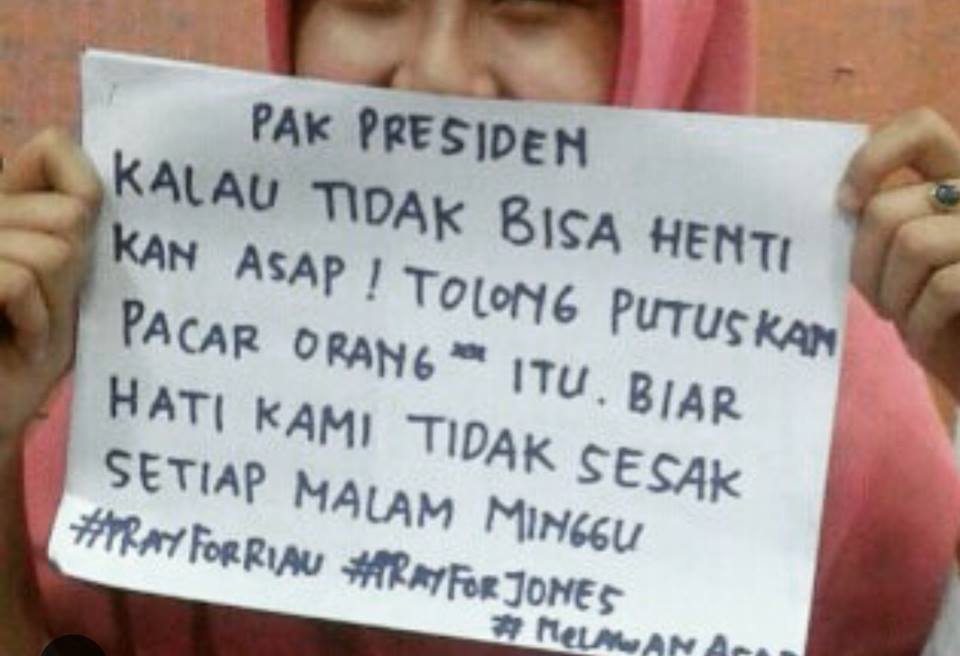 PAK PRESIDEN
KALAU TIDAK BISA HENTI
KAN ASAP! TOLONG PUTUSKAN
PACAR ORANG" ITU. BIAR
HATI KAMI TIDAK SESAK
SETIAP MALAM MINGGU
#PRAYFORRIAU #PRAYFORJONES
#MELAWANASAP